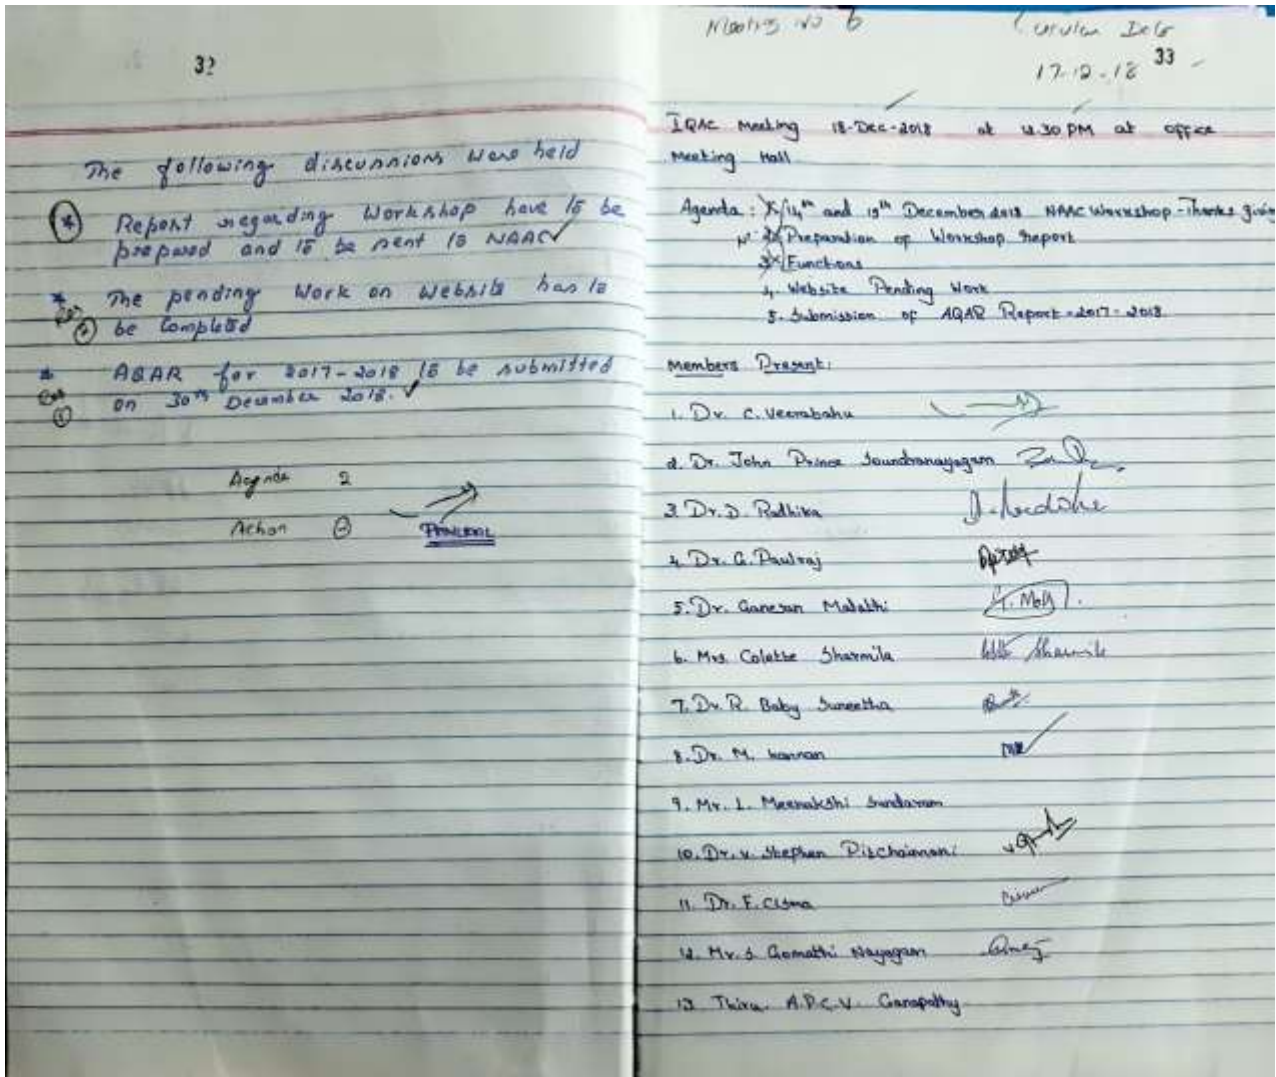 32
The following discussions were held
* Report regarding Workshop have to be
prepared and to be sent to NAAC
* The pending Work on Website has to
be Completed
* AQAR for 2017-2018 to be submitted
on 30th December 2018.
Agenda 2
Action
PRINCIPAL
Meeting No 6
Circular Date
17-12-18
33
IQAC Meeting 18-Dec-2018 at 12.30 PM at office
Meeting Hall
Agenda: 1. 14th and 15th December 2018 NAAC Workshop - Thanks giving
2. Preparation of Workshop Report
3. Functions
4. Website Pending Work
5. Submission of AQAR Report - 2017-2018
Members Present:
1. Dr. C. Veerabahu
2. Dr. John Prince Soundranayagam
3. Dr. D. Radhika
D. Radhika
4. Dr. G. Paulraj
5. Dr. Ganesan Malathi
6. Mrs. Colette Sharmila
Sharmila
7. Dr. R. Baby Suneetha
8. Dr. M. Kannan
9. Mr. L. Meenakshi Sundaram
10. Dr. V. Stephen Pitchaimani
11. Dr. F.
12. Mr. S. Gomathi Nayagam
13 Thiru. A.P.C.V. Ganapathy